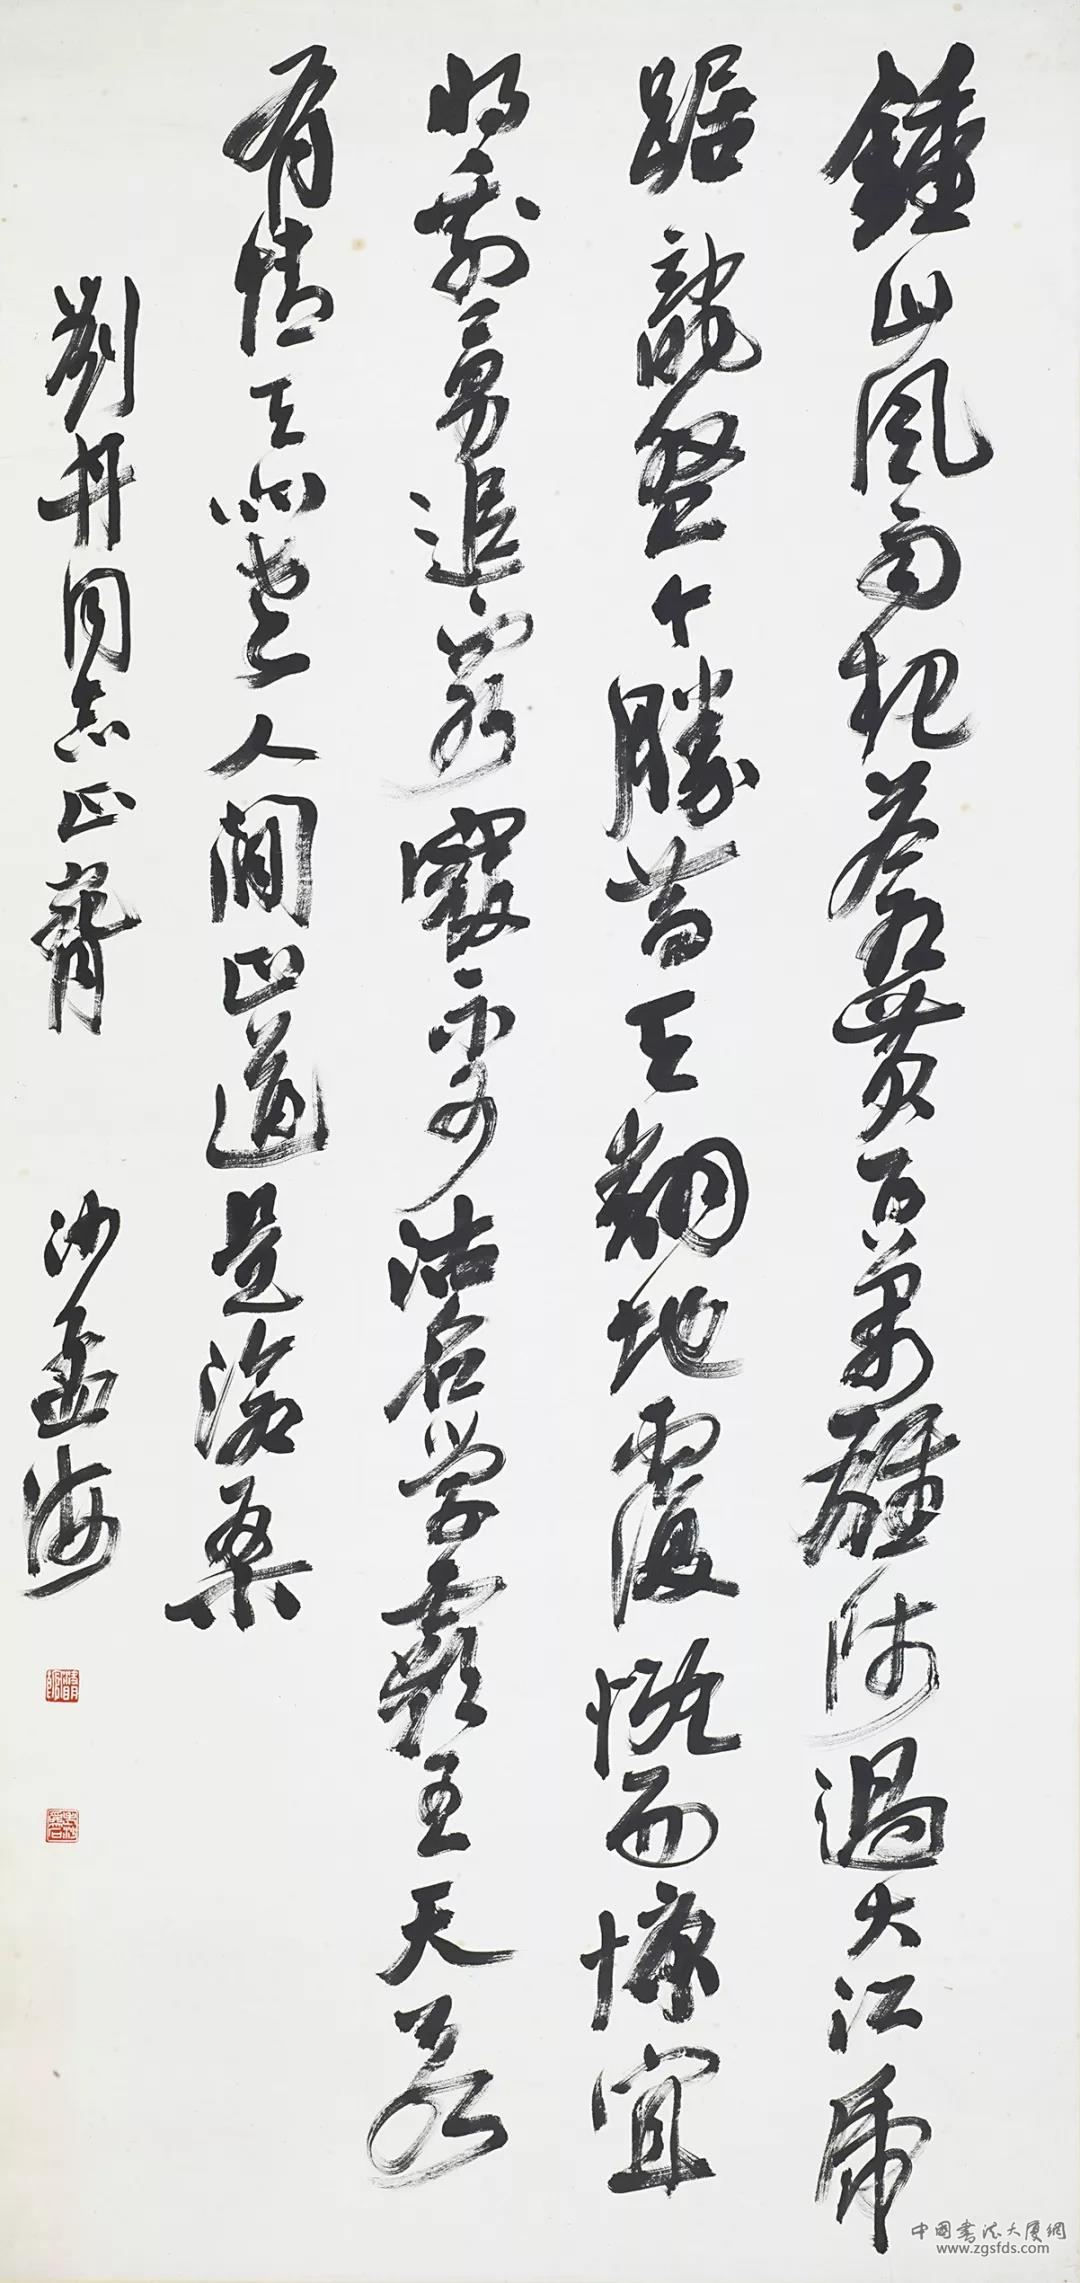 鍾山風雨起蒼黃百萬雄师過大江虎
踞龍盤今勝昔天翻地覆慨而慷宜
将剩勇追窮寇不可沽名学霸王天若
有情天亦老人間正道是滄桑
劉丹同志正 沙孟海
中国书法大厦網
www.zgsfds.com